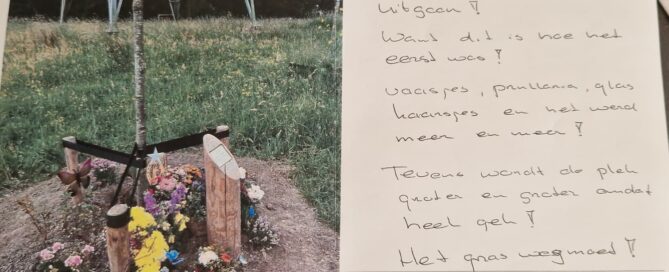 uitgaan!
Want dit is hoe het
eerst was!
vaasjes, prullaria, glas
kaarsjes en het werd
meer en meer!
Tevens wordt de plek
groter en groter omdat
heel geh!
Het gras wegmaed!